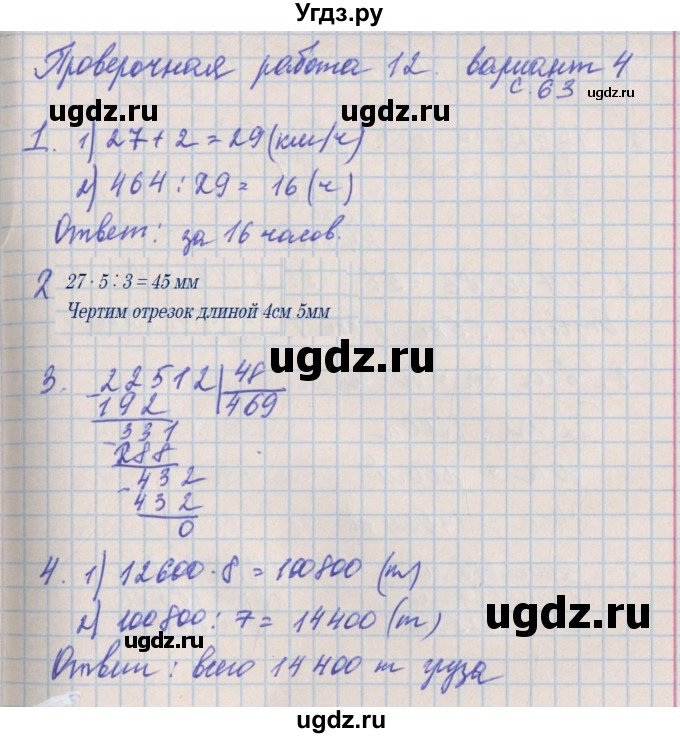 Угдз.ру
Проверочная работа 12. вариант 4
с. 63
ugdz.ru
ugdz.ru
1. 1) 27 + 2 = 29 (км/ч)
ugdz.ru
2) 464 : 29 = 16 (ч)
ugdz.ru
Ответ: за 16 часов.
ugdz.ru
2 27 · 5 : 3 = 45 мм
Чертим отрезок длиной 4см 5мм
ugdz.ru
3. - 22512 | 48
192 469
- 331
288
- 432
432
0
4. 1) 12600 · 8 = 100800 (т)
ugdz.ru
2) 100800 : 7 = 14400 (т)
ugdz.ru
Ответ: всего 14 400 т груза
ugdz.ru
ugdz.ru
ugdz.ru